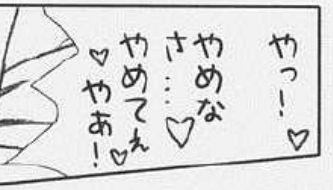 やっ！♡
やめな
さ……♡
やめてぇ
♡やあ！♡